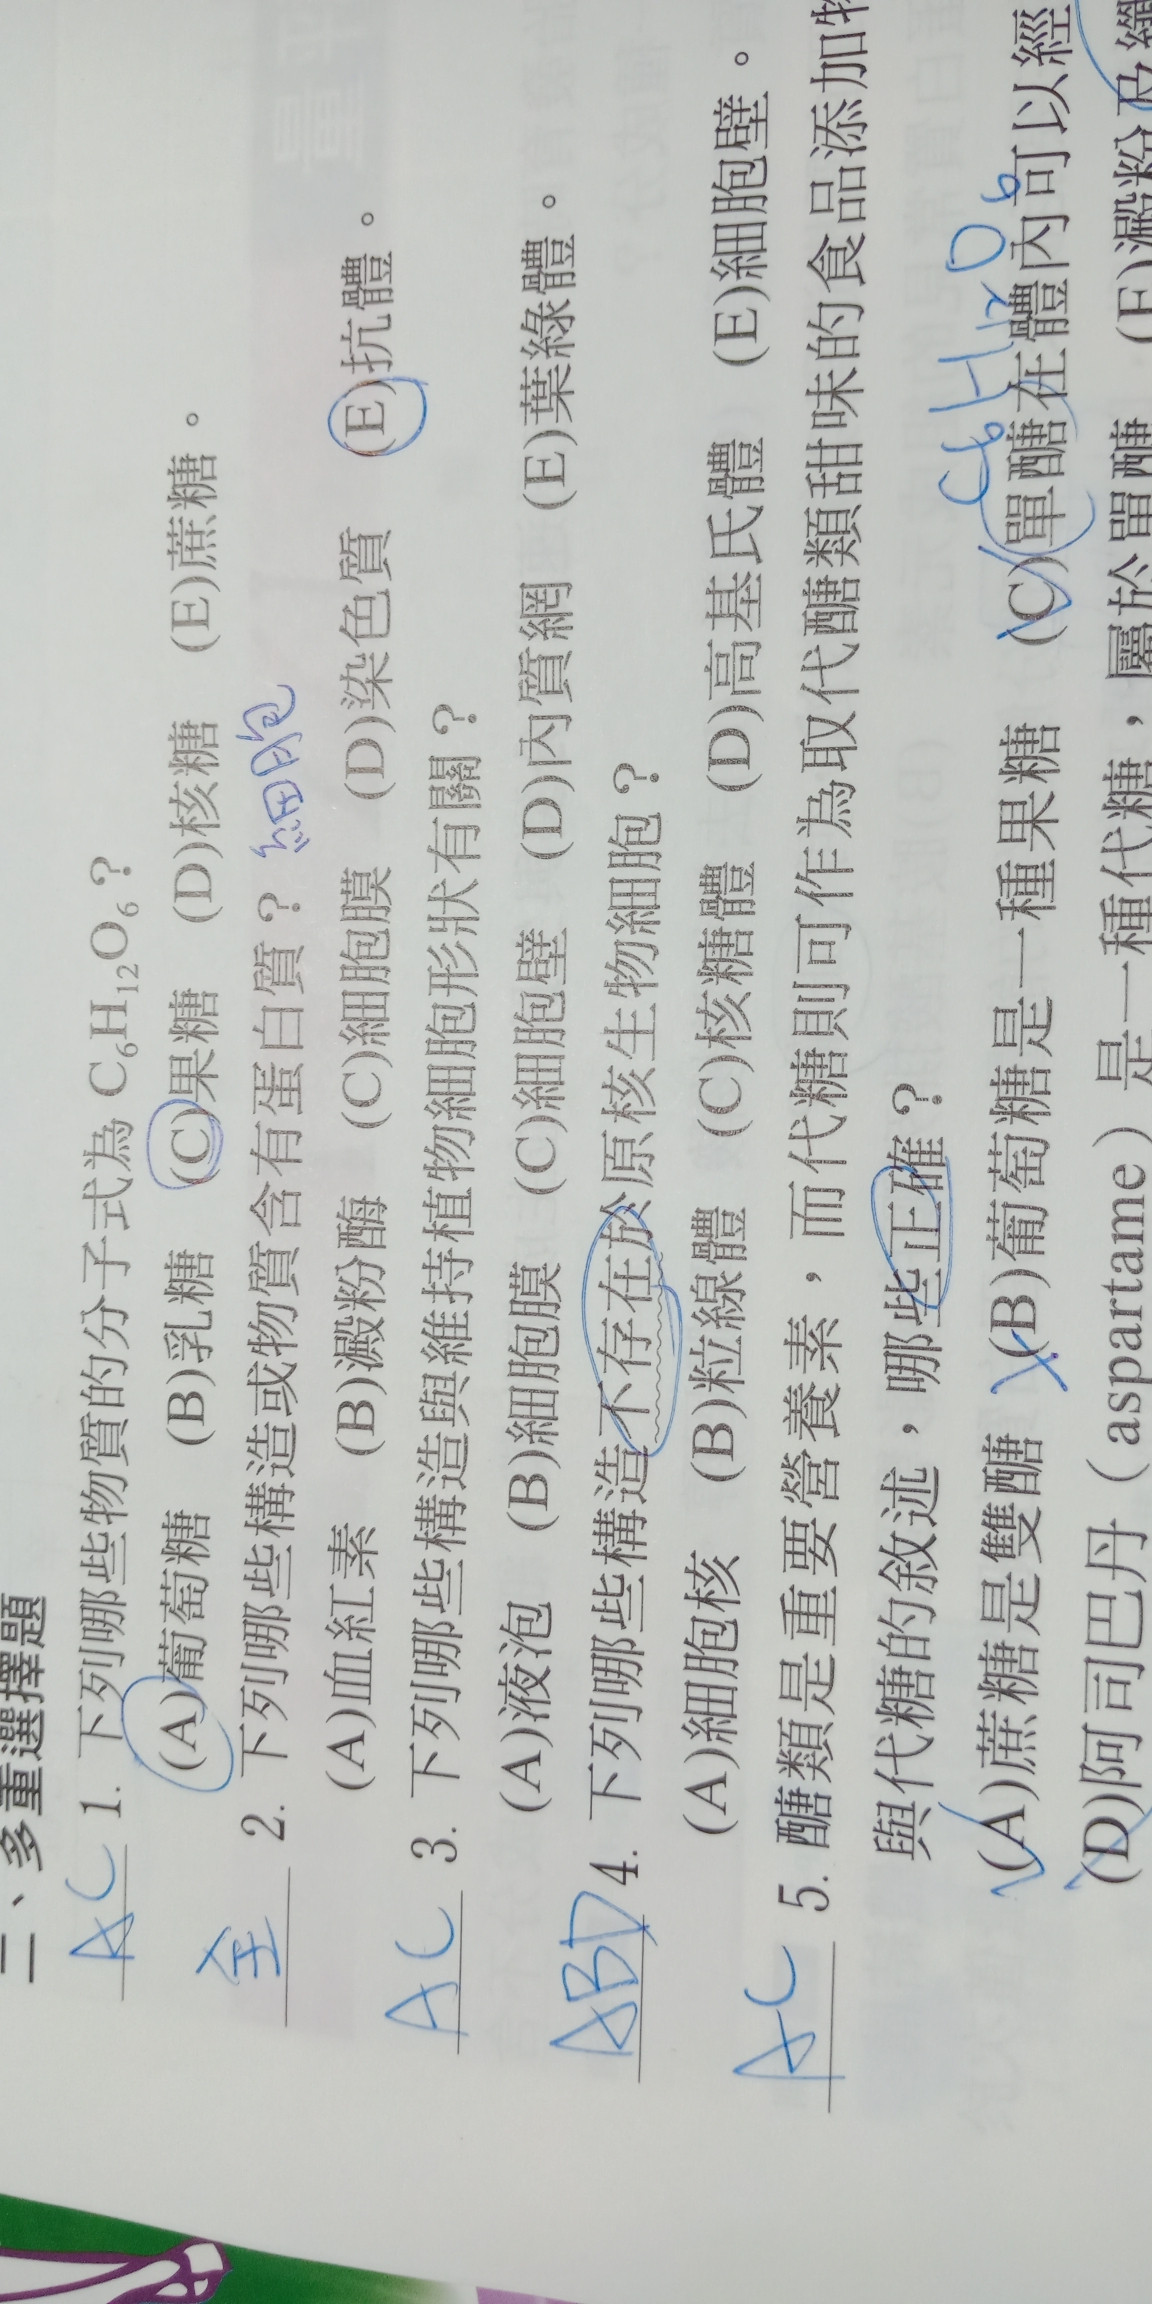 二、多重選擇題
AC 1. 下列哪些物質的分子式為 C6H12O6？
(A)葡萄糖 (B)乳糖 (C)果糖 (D)核糖 (E)蔗糖。
全 2. 下列哪些構造或物質含有蛋白質？ 細胞
(A)血紅素 (B)澱粉酶 (C)細胞膜 (D)染色質 (E)抗體。
AC 3. 下列哪些構造與維持植物細胞形狀有關？
(A)液泡 (B)細胞膜 (C)細胞壁 (D)內質網 (E)葉綠體。
ABD 4. 下列哪些構造不存在於原核生物細胞？
(A)細胞核 (B)粒線體 (C)核糖體 (D)高基氏體 (E)細胞壁。
AC 5. 醣類是重要營養素，而代糖則可作為取代醣類甜味的食品添加物
與代糖的敘述，哪些正確？
C6H12O6
(A)蔗糖是雙醣 (B)葡萄糖是一種果糖 (C)單醣在體內可以經
(D)阿司巴丹（aspartame）是一種代糖，屬於單醣 (E)澱粉及纖